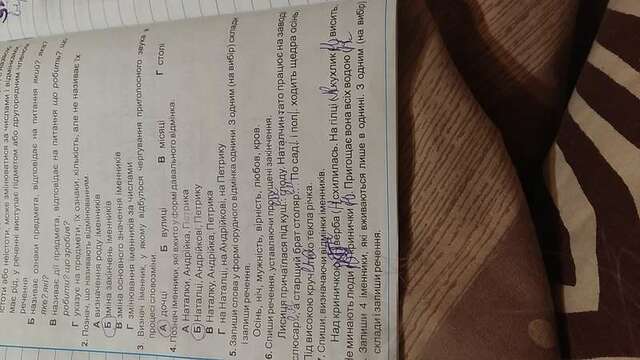 істоти або неістоти, може змінюватися за числами і відмінками,
має рід, у реченні виступає підметом або другорядним членом
речення
Б називає ознаки предмета, відповідає на питання який? яка?
яке? які?
В називає дії предмета, відповідає на питання що робить? що
робити? що зробив?
Г указує на предмети, їх ознаки, кількість, але не називає їх
2. Познач, що називають відмінюванням.
А визначення роду іменників
Б зміна закінчень іменників
В зміна основного значення іменників
Г змінювання іменників за числами
3. Визнач іменник, у якому відбулося чергування приголосного звука в
процесі словозміни.
А дочці Б вулиці В місяці Г столі
4. Познач іменники, які вжито у формі давального відмінка.
А Наталки, Андрійка, Петрика
Б Наталці, Андрійкові, Петрику
В Наталку, Андрійка, Петрика
Г на Наталці, на Андрійкові, на Петрику
5. Запиши слова у формі орудного відмінка однини. З одним (на вибір) склади
і запиши речення.
Осінь, ніч, мужність, вірність, любов, кров.
6. Спиши речення, уставляючи пропущені закінчення.
Лисиця причаїлася під кущ глоду. Наталчин тато працює на заводі
слюсар, а старший брат столяр. По сад і пол ходить щедра осінь.
Під високою круч тихо текла річка.
7. Спиши, визначаючи відмінки іменників.
Над криничкою верба схилилась. На гілці кухлик висить.
Не минають люди кринички. Пригощає вона всіх водою
Запиши 4 іменники, які вживаються лише в однині. З одним (на вибір)
склади і запиши речення.